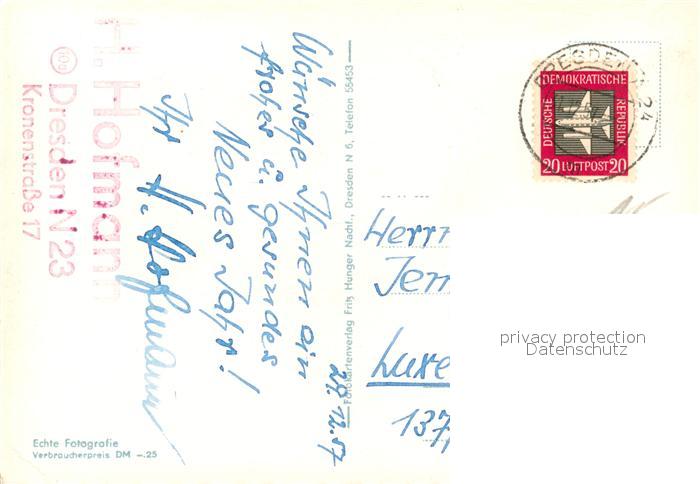 H. Hofmann
10a Dresden N 23
Kronenstraße 17
Wünsche Ihnen ein
frohes u. gesundes
Neues Jahr!
Ihr H. Hofmann
29.12.57
Echte Fotografie
Verbraucherpreis DM –.25
Fotokartenverlag Fritz Hunger Nachf., Dresden N 6, Telefon 55453
DRESDEN N 24
DEMOKRATISCHE
DEUTSCHE
REPUBLIK
20 LUFTPOST 20
Herrn
Jem
Luxe
137
privacy protection
Datenschutz